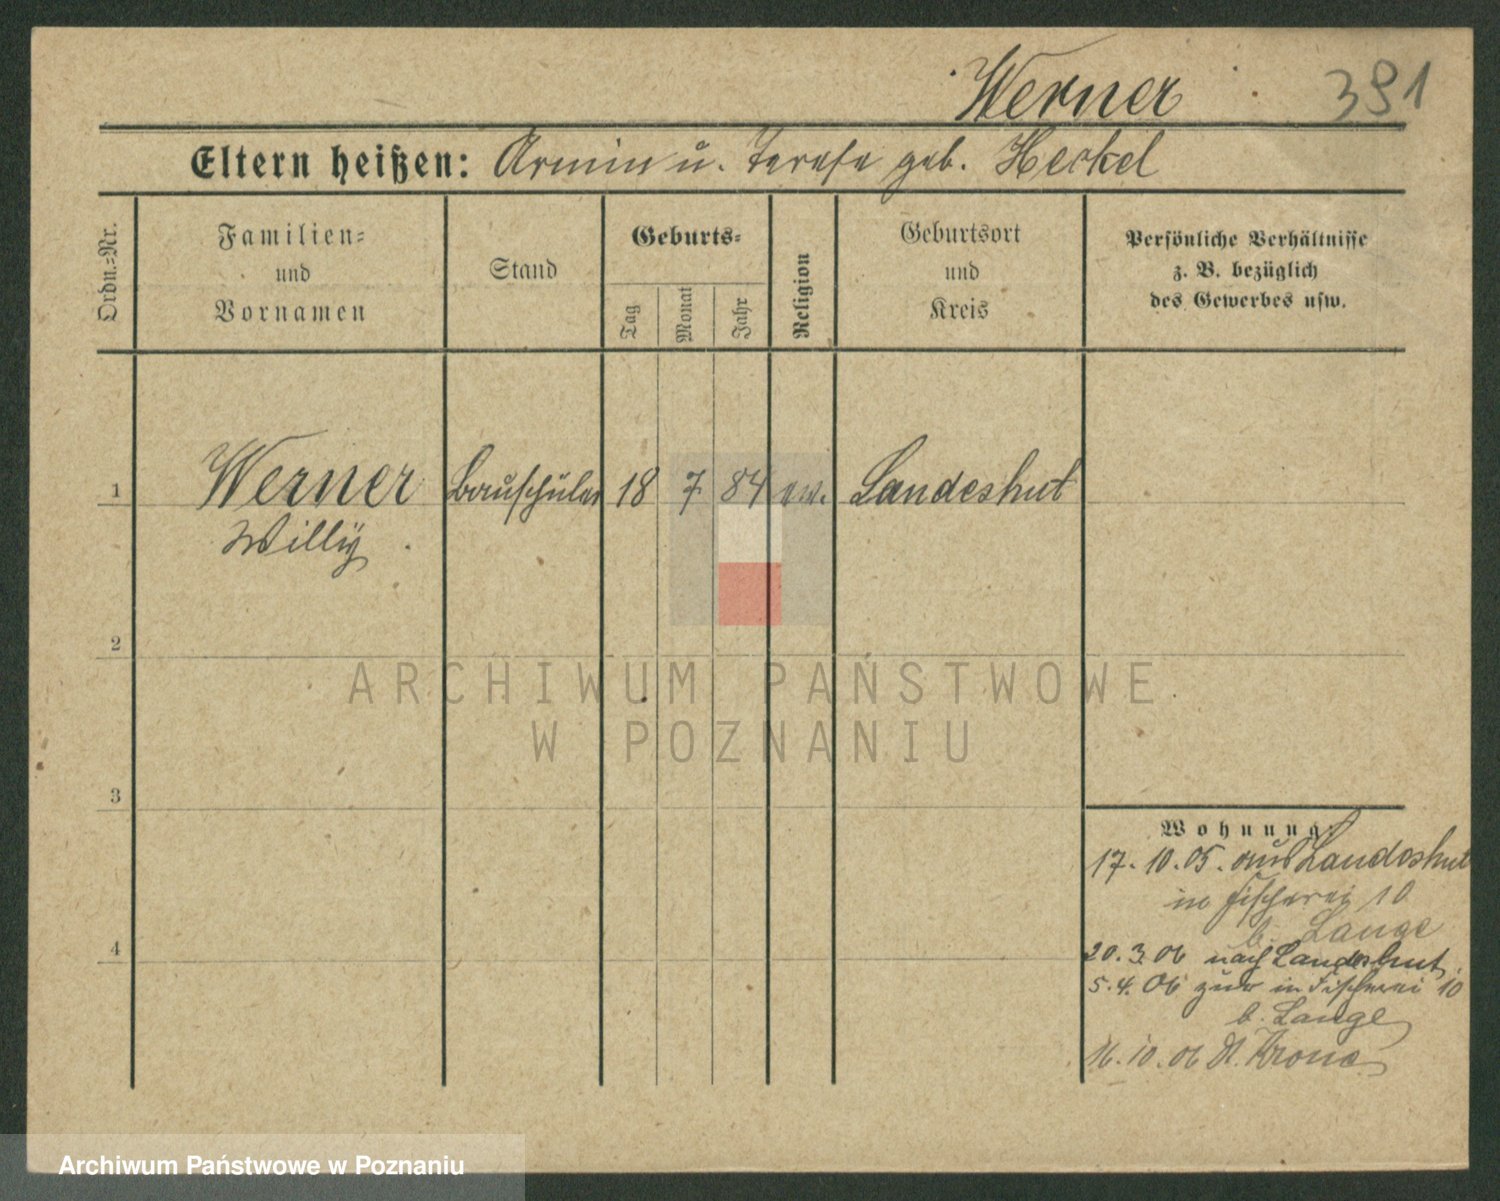 Werner 391
Eltern heißen: Armin u. Terese geb. Heckel
Ordn.-Nr.
Familien-
und
Vornamen
Stand
Geburts-
Tag
Monat
Jahr
Religion
Geburtsort
und
Kreis
Persönliche Verhältnisse
z. B. bezüglich
des Gewerbes usw.
1 Werner Bauschüler 18 7 84 ev. Landeshut
Willy
2
ARCHIWUM PAŃSTWOWE
W POZNANIU
3
Wohnung
17.10.05. aus Landeshut
in Fischerei 10
b. Lange
4
20.3.06 nach Landeshut.
5.4.06 zur in Fischerei 10
b. Lange
16.10.06 Dt. Krone
Archiwum Państwowe w Poznaniu